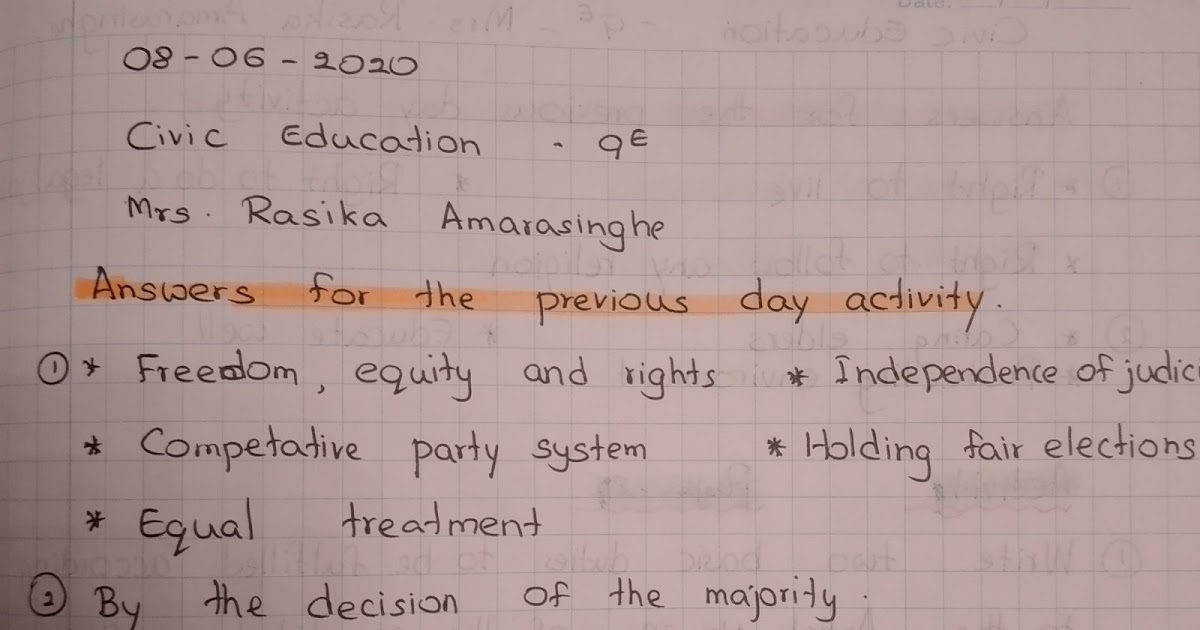 08-06-2020
Civic Education - 9E
Mrs. Rasika Amarasinghe
Answers for the previous day activity.
① * Freedom, equity and rights * Independence of judic
* Competative party system * Holding fair elections
* Equal treatment
② By the decision of the majority.